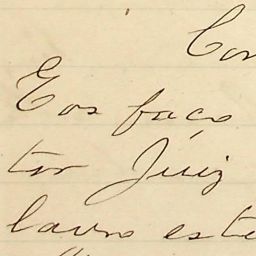 Con
E os faço
tor Juiz
lavro este